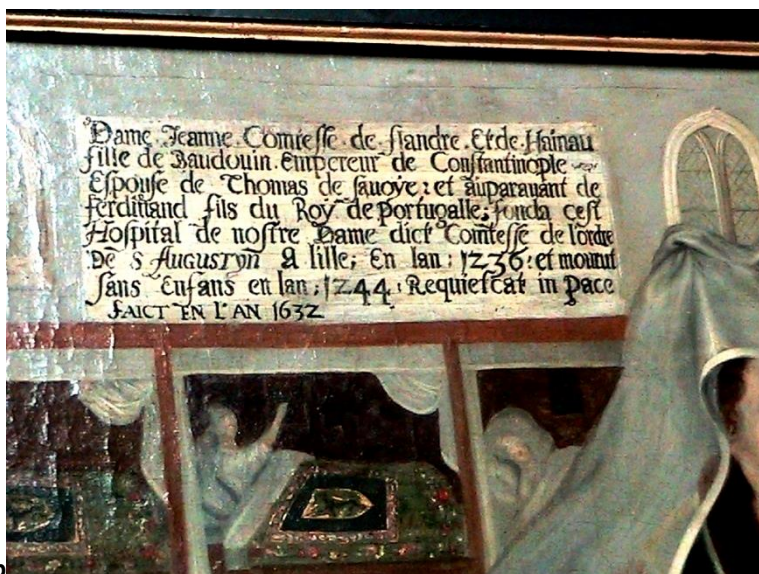 Dame Jeanne Comtesse de flandre Et de Hainau
fille de Baudouin Empereur de Constantinople
Espouse de Thomas de sauoye : et auparauant de
ferdinand fils du Roy de portugalle; fonda cest
Hospital de nostre Dame dict Comtesse de lordre
De S AUGUSTYN A lille; En lan : 1236 : et mourut
sans Enfans en lan ; 1244 . Requiescat in Pace
FAICT EN L'AN 1632